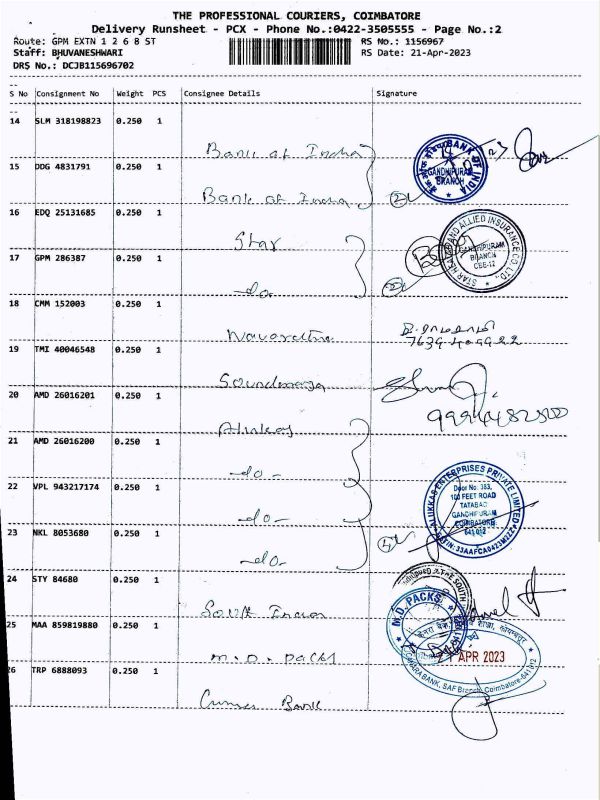 THE PROFESSIONAL COURIERS, COIMBATORE
Delivery Runsheet - PCX - Phone No.:0422-3505555 - Page No.:2
Route: GPM EXTN 1 2 6 8 ST RS No.: 1156967
Staff: BHUVANESHWARI RS Date: 21-Apr-2023
DRS No.: DCJB115696702
S No Consignment No Weight PCS Consignee Details Signature
14 SLM 318198823 0.250 1
Bank of India
15 DDG 4831791 0.250 1
Bank of India
BANK OF INDIA
GANDHIPURAM
BRANCH
16 EDQ 25131685 0.250 1
Star
STAR HEALTH AND ALLIED INSURANCE CO. LTD.
GANDHIPURAM
BRANCH
CBE-12
17 GPM 286387 0.250 1
-do-
18 CMM 152003 0.250 1
19 TMI 40046548 0.250 1
20 AMD 26016201 0.250 1
21 AMD 26016200 0.250 1
-do-
22 VPL 943217174 0.250 1
-do-
ALUKKAS ENTERPRISES PRIVATE LIMITED
Door No: 383,
100 FEET ROAD
TATABAD
GANDHIPURAM
COIMBATORE
641 012
23 NKL 8053680 0.250 1
-do-
24 STY 84680 0.250 1
South Indian
THE SOUTH
25 MAA 859819880 0.250 1
M.D. Pack
M.D. PACKS
APR 2023
CANARA BANK, SAF Branch, Coimbatore-641012
26 TRP 6888093 0.250 1
Bank